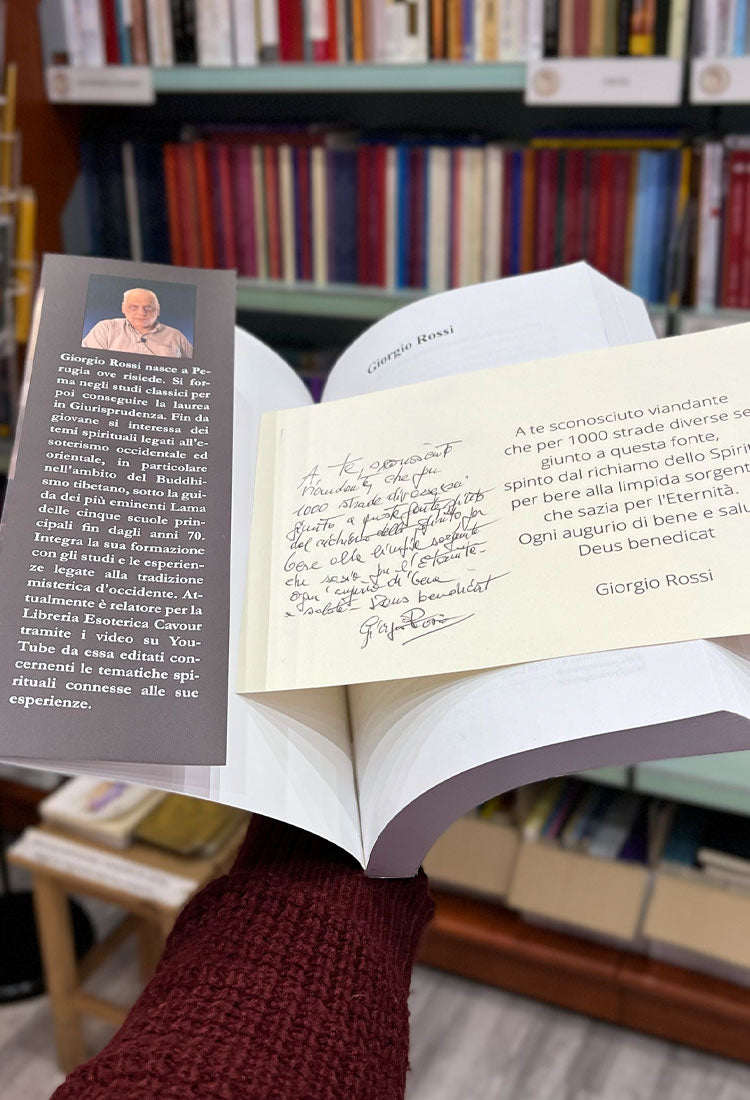 Giorgio Rossi nasce a Pe-
rugia ove risiede. Si for-
ma negli studi classici per
poi conseguire la laurea
in Giurisprudenza. Fin da
giovane si interessa dei
temi spirituali legati all'e-
soterismo occidentale ed
orientale, in particolare
nell'ambito del Buddhi-
smo tibetano, sotto la gui-
da dei più eminenti Lama
delle cinque scuole prin-
cipali fin dagli anni 70.
Integra la sua formazione
con gli studi e le esperien-
ze legate alla tradizione
misterica d'occidente. At-
tualmente è relatore per la
Libreria Esoterica Cavour
tramite i video su You-
Tube da essa editati con-
cernenti le tematiche spi-
rituali connesse alle sue
esperienze.
Giorgio Rossi
A te sconosciuto
viandante che per
1000 strade diverse sei
giunto a questa fonte, spinto
dal richiamo dello Spirito per
bere alla limpida sorgente
che sazia per l'Eternità-
Ogni augurio di bene
e salute Deus benedicat
Giorgio Rossi
A te sconosciuto viandante
che per 1000 strade diverse se
giunto a questa fonte,
spinto dal richiamo dello Spiri
per bere alla limpida sorgent
che sazia per l'Eternità.
Ogni augurio di bene e salu
Deus benedicat
Giorgio Rossi